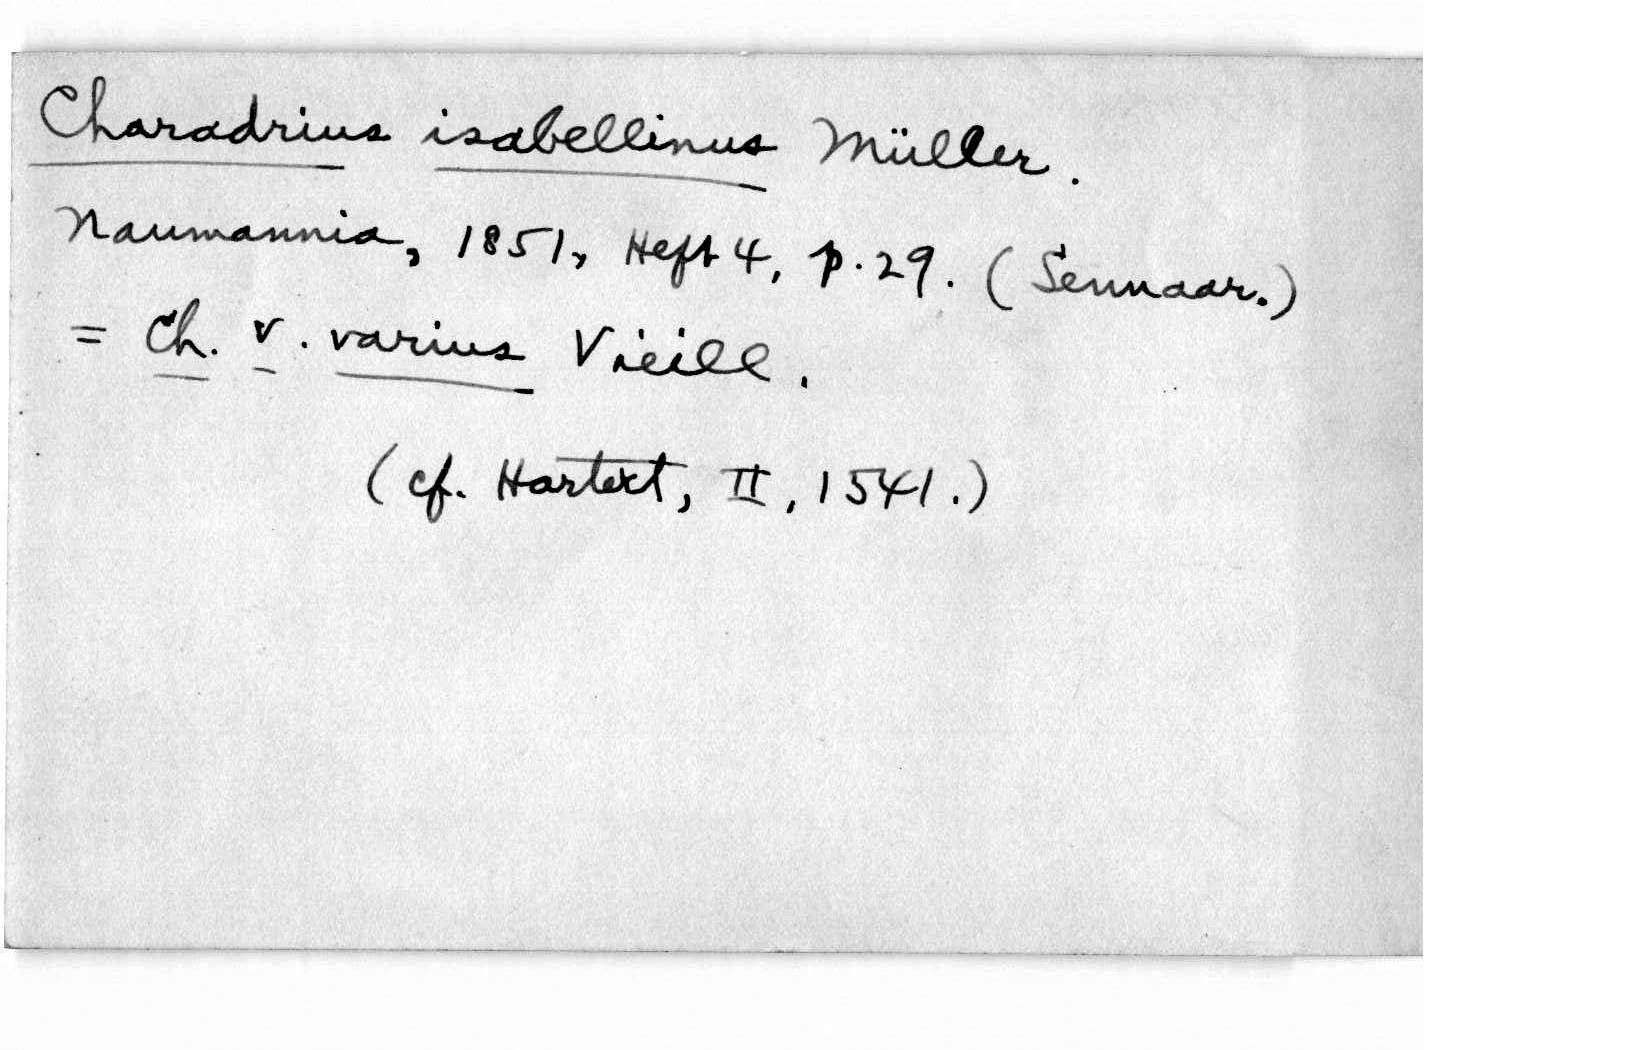 Charadrius isabellinus Müller.
Naumannia, 1851, Heft 4, p. 29. (Sennaar.)
= Ch. v. varius Vieill.
(cf. Hartert, II, 1541.)